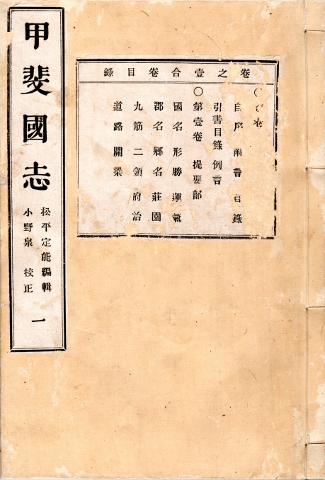 甲斐國志
松平定能編輯
小野泉校正
一
卷之壹合卷目錄
自序 目錄
引書目錄 例言
〇第壹卷 提要部
國名形勝運氣
郡名鄉名莊園
九筋二領府治
道路關梁